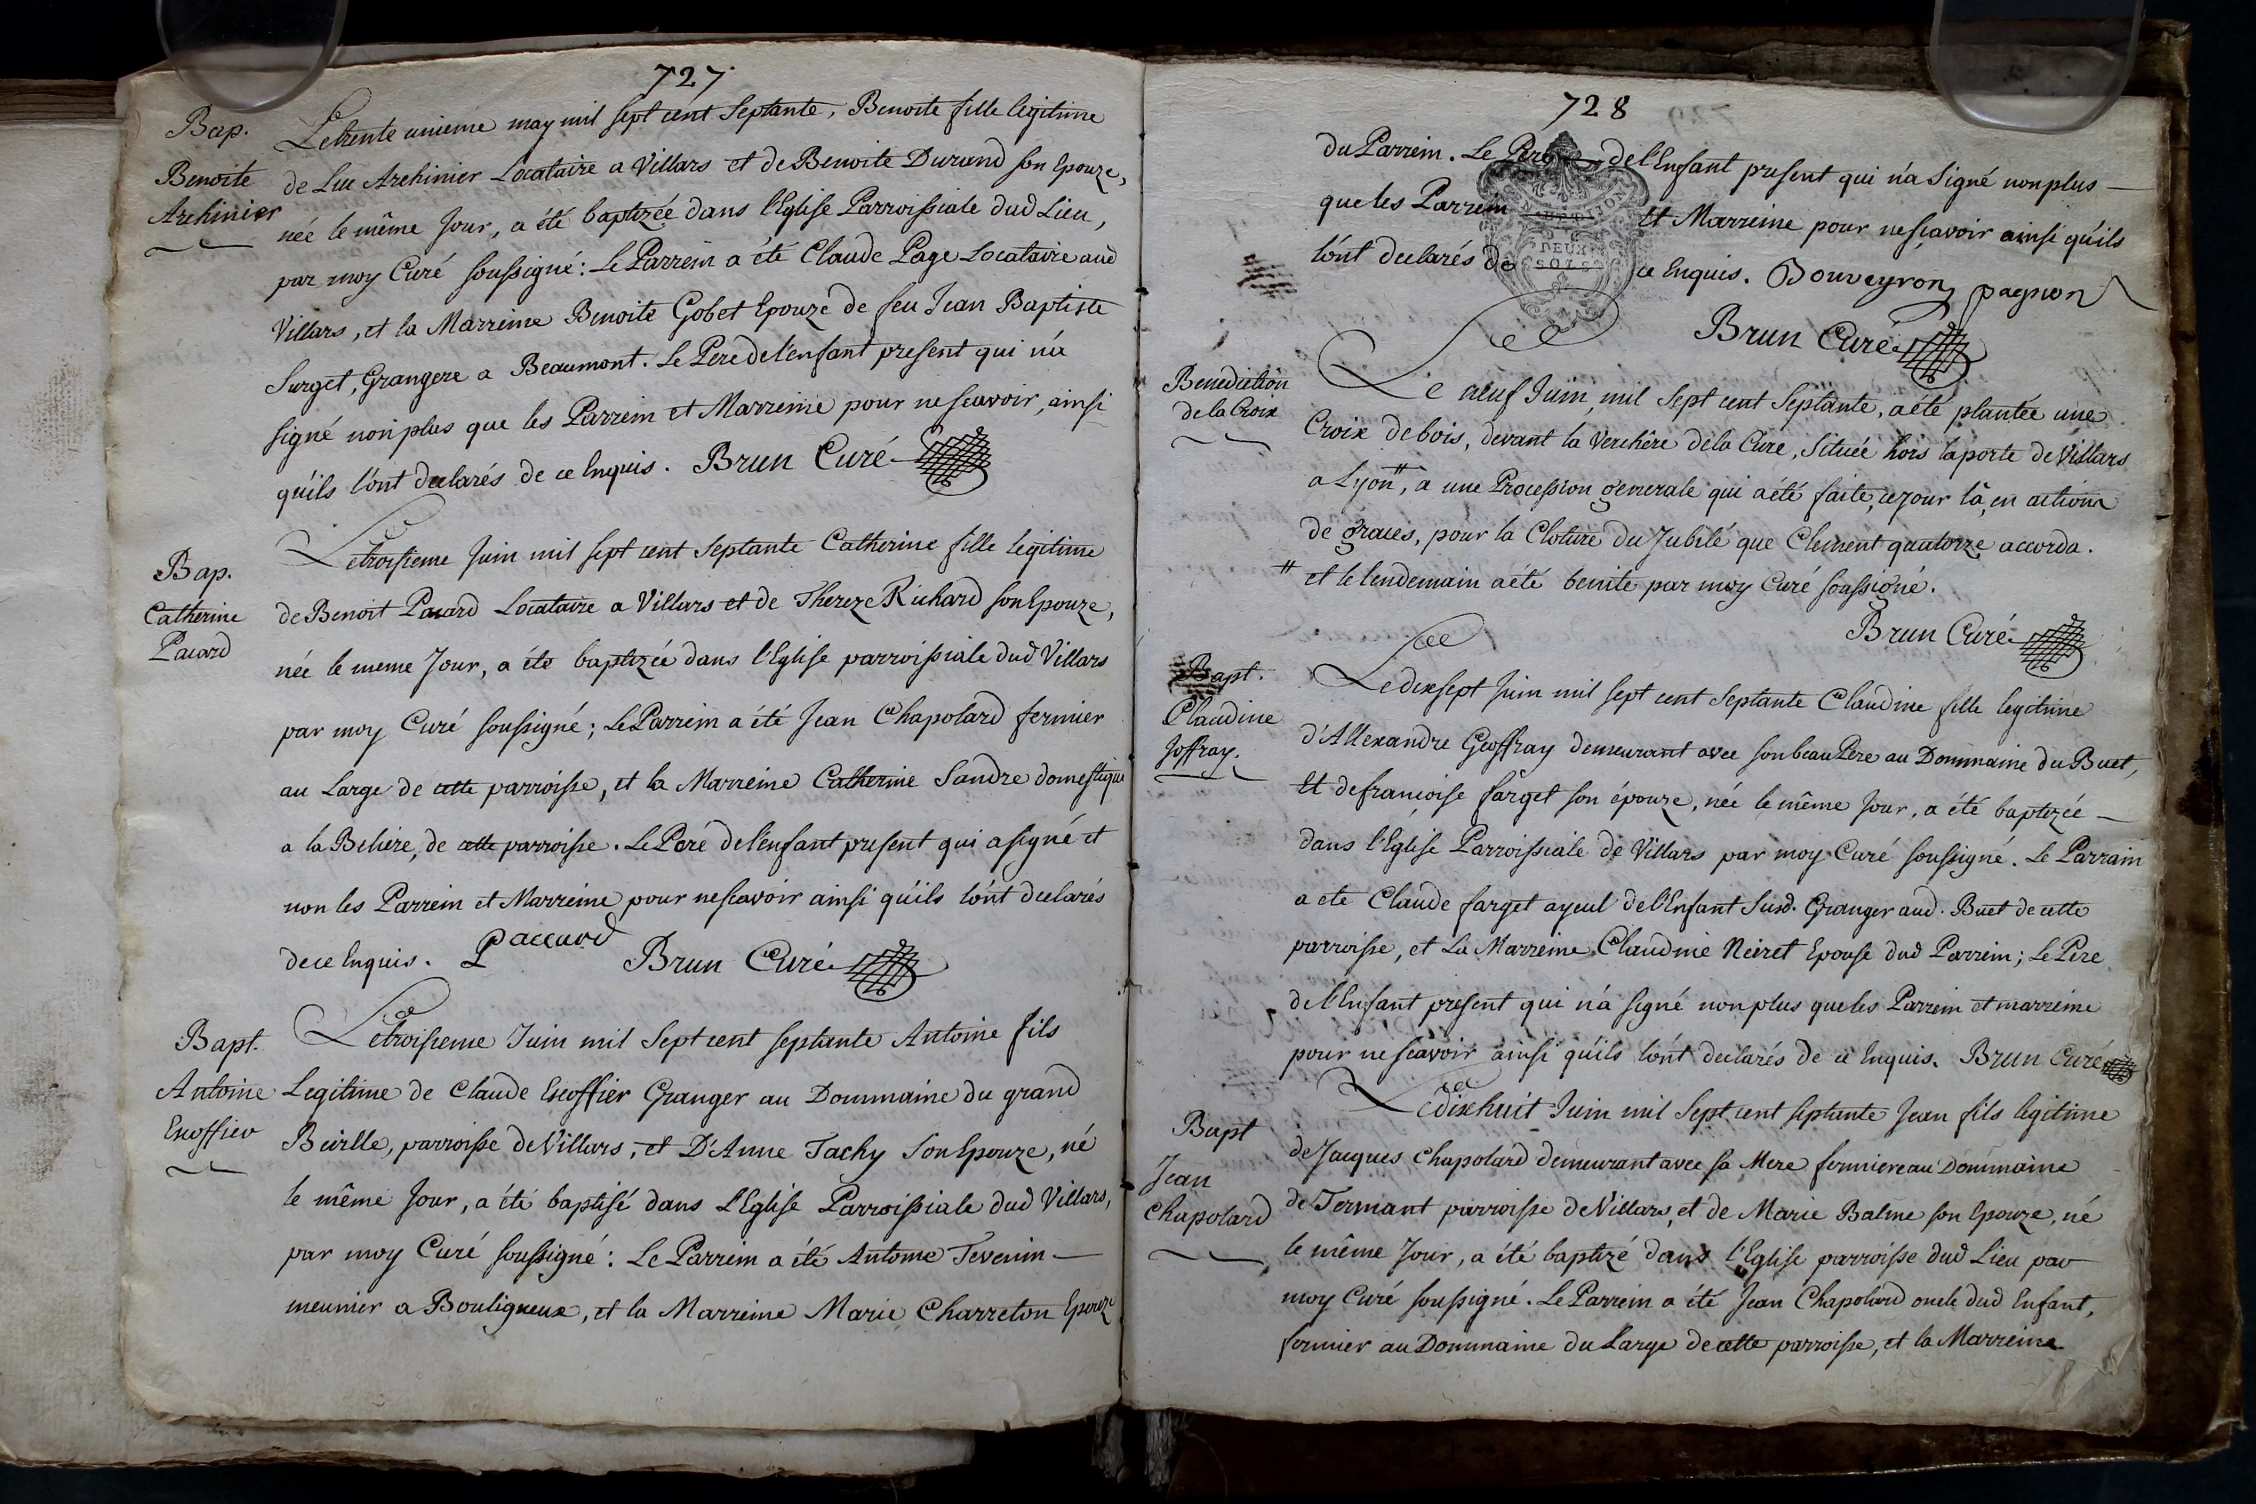 727
Bap.
Benoite
Archinier
Le trente unieme may mil sept cent Septante, Benoite fille legitime
de Luc Archinier Locataire a Villars et de Benoite Durand son Epouze,
née le même Jour, a été baptizée dans l'Eglise Parroissiale dud Lieu,
par moy Curé soussigné: Le Parrein a été Claude Page Locataire aud
Villars, et la Marreine Benoite Gobet Epouze de feu Jean Baptiste
Surget, Grangere a Beaumont. Le Pere de l'enfant present qui n'a
signé non plus que les Parrein et Marreine pour ne scavoir, ainsi
qu'ils l'ont declarés de ce Enquis. Brun Curé
Bap.
Catherine
Pacard
Le troisieme Juin mil sept cent Septante Catherine fille legitime
de Benoit Pacard Locataire a Villars et de Thereze Richard son Epouze,
née le meme Jour, a été baptizée dans l'Eglise parroissiale dud Villars
par moy Curé soussigné; Le Parrein a été Jean Chapolard fermier
au Large de cette parroisse, et la Marreine Catherine Sandre domestique
a la Beliere, de cette parroisse. Le Peré de l'enfant present qui a signé et
non les Parrein et Marreine pour ne scavoir ainsi qu'ils l'ont declarés
de ce Enquis. Paccard Brun Curé
Bapt.
Antoine
Escoffier
Le troisieme Juin mil Sept cent septante Antoine fils
Legitime de Claude Escoffier Granger au Dommaine du grand
parroisse de Villars, et D'Anne Tachy Son Epouze, né
le même Jour, a été baptisé dans L'Eglise Parroissiale dud Villars,
par moy Curé soussigné: Le Parrein a été Antoine Tevenin
meunier a Bouligneux, et la Marreine Marie Charreton Epouze
728
du Parrein. Le Pere de l'Enfant present qui n'a Signé non plus
que les Parrein et Marreine pour ne scavoir ainsi qu'ils
l'ont declarés de ce Enquis. Bouveyron pagnon
DEUX
SOLS
Brun Curé
Benediction
de la Croix
Le neuf Juin mil Sept cent Septante, a été plantée une
Croix de bois, devant la Verchêre de la Cure, Située hors la porte de Villars
a Lyon #, a une Procession generale qui a été faite, ce jour là, en action
de graces, pour la Cloture du Jubilé que Clement quatorze accorda.
# et le lendemain a été benite par moy Curé soussigné.
Brun Curé
Bapt.
Claudine
Joffray.
Le dixsept Juin mil sept cent Septante Claudine fille legitime
d'Allexandre Geoffray demeurant avec son beau Pere au Dommaine du Buet,
Et de francoise farget son épouze, née le même Jour, a été baptizée
dans l'Eglise Parroissiale de Villars par moy Curé soussigné. Le Parrain
a ete Claude farget ayeul de l'Enfant Susd. Granger aud. Buet de cette
parroisse, et La Marreine Claudine Neiret Epouse dud Parrein; Le Pere
de l'Enfant present qui n'a signé non plus que les Parrein et marreine
pour ne scavoir ainsi qu'ils l'ont declarés de ce Enquis. Brun Curé
Bapt
Jean
Chapolard
Le dixhuit Juin mil Sept cent septante Jean fils legitime
de Jacques Chapolard demeurant avec sa Mere fermiere au Dommaine
de Termant parroisse de Villars, et de Marie Balme son Epouze, né
le même Jour, a été baptizé dans l'Eglise parroisse dud Lieu par
moy Curé soussigné. Le Parrein a été Jean Chapolard oncle dud Enfant,
fermier au Dommaine du Large de cette parroisse, et la Marreine